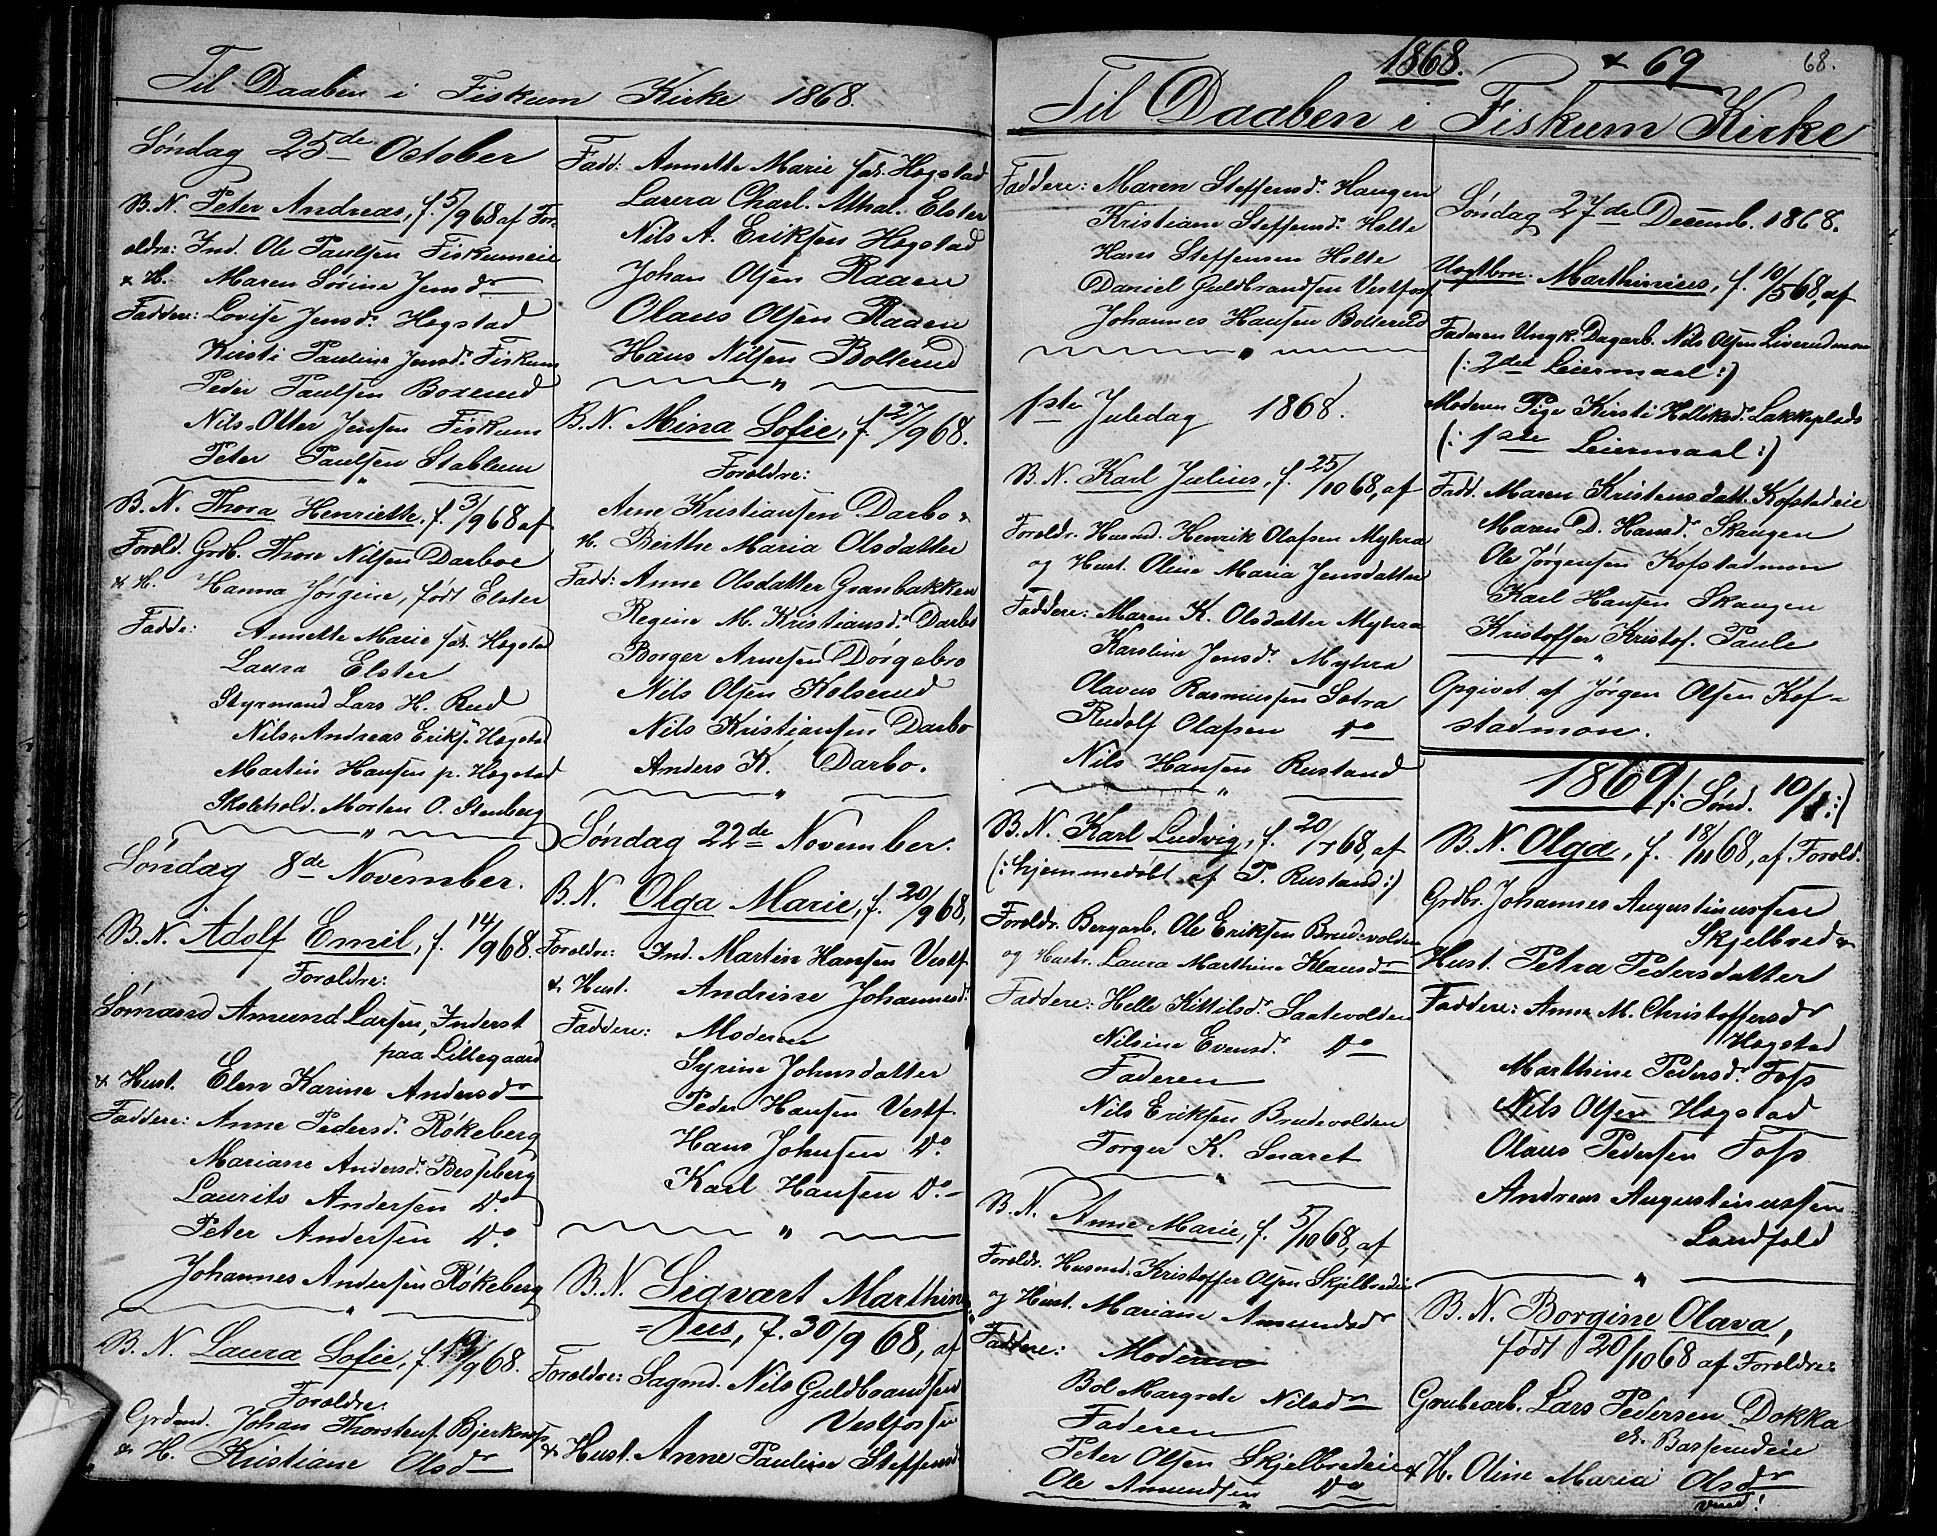 Til Daaben i Fiskum Kirke 1868.
Søndag 25de October
B. N. Peter Andreas, f. 5/9 68 af For-
ældre: Ind. Ole Paulsen Fiskumeie
& H. Maren Sørine Jensdr
Faddere: Lovise Jensd. Hogstad
Kirsti Pauline Jensd. Fiskum
Peder Paulsen Boxerud
Nils Otter Jensen Fiskum
Peter Paulsen Stablum
B. N. Thora Henriette, f. 3/9 68 af
Foræld. Grdb. Thore Nilsen Darboe
& H. Hanna Jørgine, født Elster
Fadde: Annette Marie Hogstad
Laura Elster
Styrmand Lars H. Rud
Nils Andreas Eriks. Hogstad
Martin Hansen p. Hogstad
Skolehold. Morten O. Stenberg
Søndag 8de November.
B. N. Adolf Emil, f. 14/9 68.
Forældre:
Sømand Amund Larsen, Inderst
paa Lillegaard
& Hust. Elen Karine Andersdr
Faddere: Anne Pedersd. Røkeberg
Mariane Andersd. Besseberg
Laurits Andersen Do
Peter Andersen Do
Johannes Andersen Røkeberg
B. N. Laura Sofie, f. /9 68.
Forældre:
Grdmd. Johan Thorstens. Bjerknæs
& H. Kristiane Olsdr
Fadd: Annette Marie Hogstad
Laura Charl. Athal. Elster
Nils A. Eriksen Hogstad
Johan Olsen Raaen
Olaus Olsen Raaen
Hans Nilsen Bollerud
B. N. Mina Sofie, f. 27/9 68.
Forældre:
Arne Kristiansen Darbo &
H. Berthe Maria Olsdatter
Fadd: Anne Olsdatter Granbakken
Regine M. Kristiansd. Darbo
Borger Arnesen Dørgebro
Nils Olsen Kolserud
Nils Kristiansen Darbo
Anders K. Darbo.
Søndag 22de November.
B. N. Olga Marie, f. 20/9 68,
Forældre: Ind. Martin Hansen Vestf
& Hust. Andrine Johannesd.
Faddere: Moderen
Syrine Johnsdatter
Peder Hansen Vestf
Hans Johnsen Do
Karl Hansen Do
B. N. Sigvart Marthin-
=ius, f. 30/9 68, af
Forældre: Sagmd. Nils Guldbrandsen
Vestfossen
& Hust. Anne Pauline Steffensd
1868. & 69 68.
Til Daaben i Fiskum Kirke
Faddere: Maren Steffensd. Haugen
Kristiane Steffensd. Holte
Hans Steffensen Holte
Daniel Guldbrandsen Vestfos
Johannes Hansen Bollerud
1ste Juledag 1868.
B. N. Karl Julius, f. 25/10 68, af
Forældr. Husmd. Henrik Olafsen Myhra
og Hust. Oline Maria Jensdatter
Faddere: Maren K. Olsdatter Myhra
Karoline Jensd. Myhra
Olavus Rasmussen Sotra
Rudolf Olafsen Do
Nils Hansen Rustand
B. N. Karl Ludvig, f. 20/7 68, af
(: hjemmedøbt af P. Rustand :)
Forældr. Bergarb. Ole Eriksen Brudevolden
og Hustr. Laura Marthine Klausdr
Faddere: Helle Kittilsd. Saatevolden
Nilsine Evensd. Do
Faderen
Nils Eriksen Brudevolden
Torger K. Snaret
B. N. Anne Marie, f. 5/10 68, af
Forældr. Husmd. Kristoffer Olsen Skjelbredeie
og Hust. Mariane Amundsdr
Faddere: Moderen
Bol Margrete Nilsdr
Faderen
Peter Olsen Skjelbredeie
Ole Amundsen Do
Søndag 27de Decemb. 1868.
Uægtbrn. Marthinius, f. 10/5 68, af
Faderen Ungk. Dagarb. Nils Olsen Liverudmoen
(: 2det Leiermaal :)
Moderen Pige Kirsti Helliksd. Lakkeplads
(: 1ste Leiermaal :)
Fadd. Maren Kristensdatt. Kofstadeie
Maren D. Hansd. Skaugen
Ole Jørgensen Kofstadmon
Karl Hansen Skaugen
Kristoffer Kristof. Paule
Opgivet af Jørgen Olsen Kof-
stadmon.
1869 (: Sønd. 10/1 :)
B. N. Olga, f. 18/11 68, af Foræld.
Grdbr. Johannes Augustinussen
Skjelbred &
Hust. Petra Pedersdatter
Faddere: Anne M. Christoffersdr
Hogstad
Marthine Pedersd. Foss
Nils Olsen Hogstad
Olaus Pedersen Foss
Andreas Augustinussen
Landfald
B. N. Borgine Olava,
født 20/10 68 af Forældre:
Grubearb. Lars Pedersen Dokka
e. Basserudeie
& H. Oline Maria Olsdr
vend!